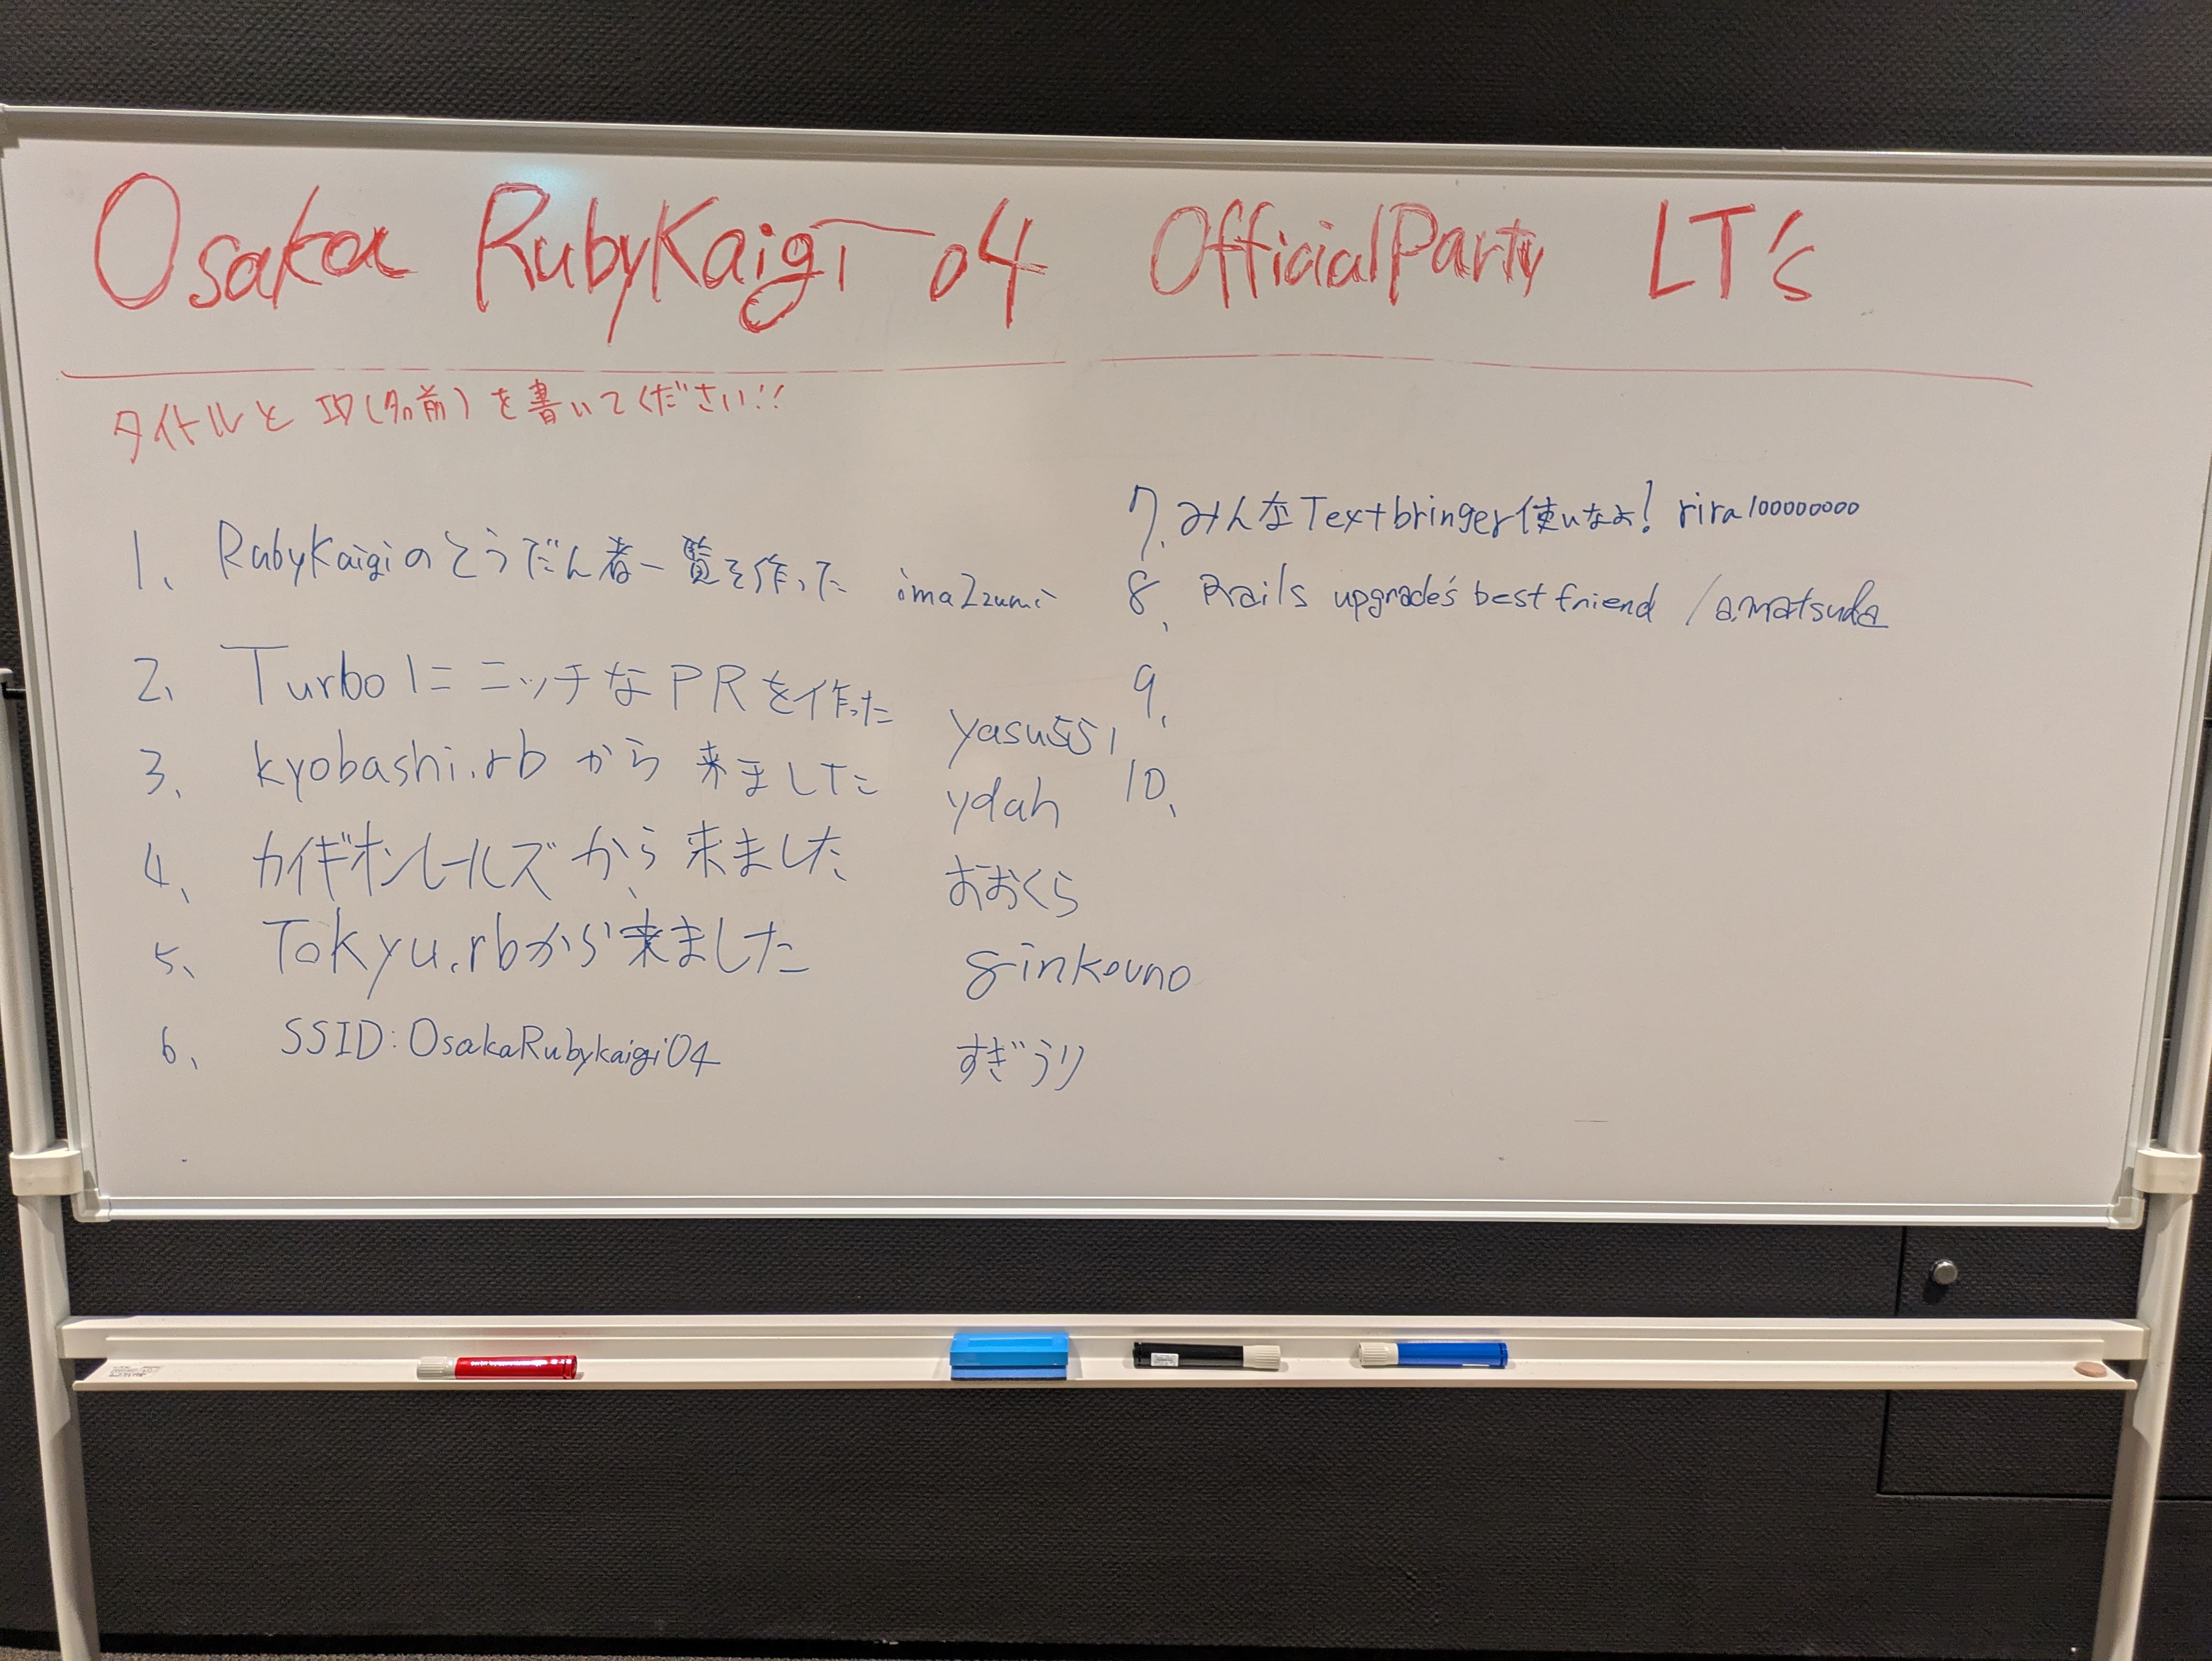 Osaka RubyKaigi 04 OfficialParty LT's
タイトルと ID(名前)を書いてください!!
1、 RubyKaigiのとうだん者一覧を作った imaIzumi
2、 Turboにニッチな PRを作った yasu551
3、 kyobashi.rb から 来ました ydah
4、 カイギオンレールズ から 来ました おおくら
5、 Tokyu.rbから来ました ginkouno
6、 SSID:OsakaRubykaigi04 すぎうり
7、みんなTextbringer使いなよ! rira100000000
8、 Rails upgrade's best friend /a.matsuda
9、
10、